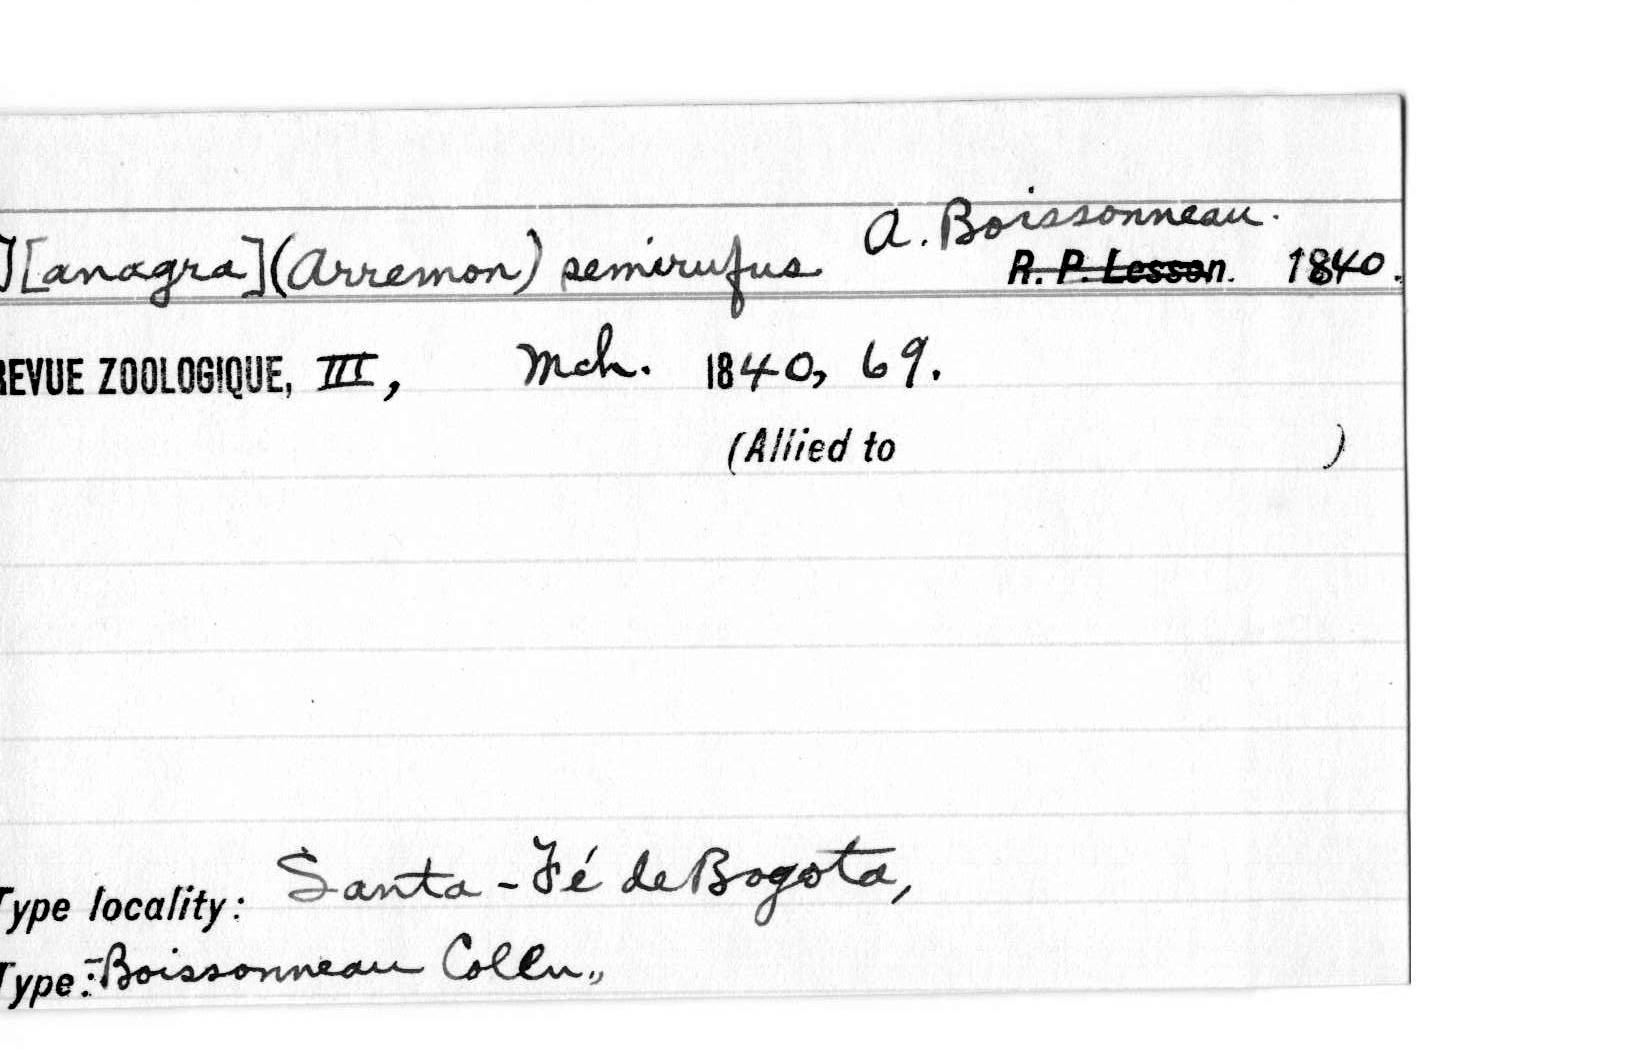 T[anagra] (Arremon) semirufus A. Boissonneau.
R. P. Lesson. 1840.
REVUE ZOOLOGIQUE, III, Mch. 1840, 69.
(Allied to )
Type locality: Santa-Fé de Bogota,
Type:-Boissonneau Colln.,